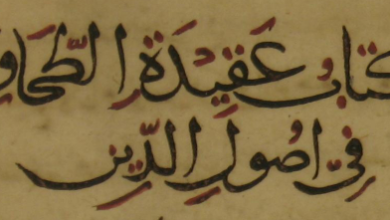 كتاب عقيدة الطحاو
في اصول الدين